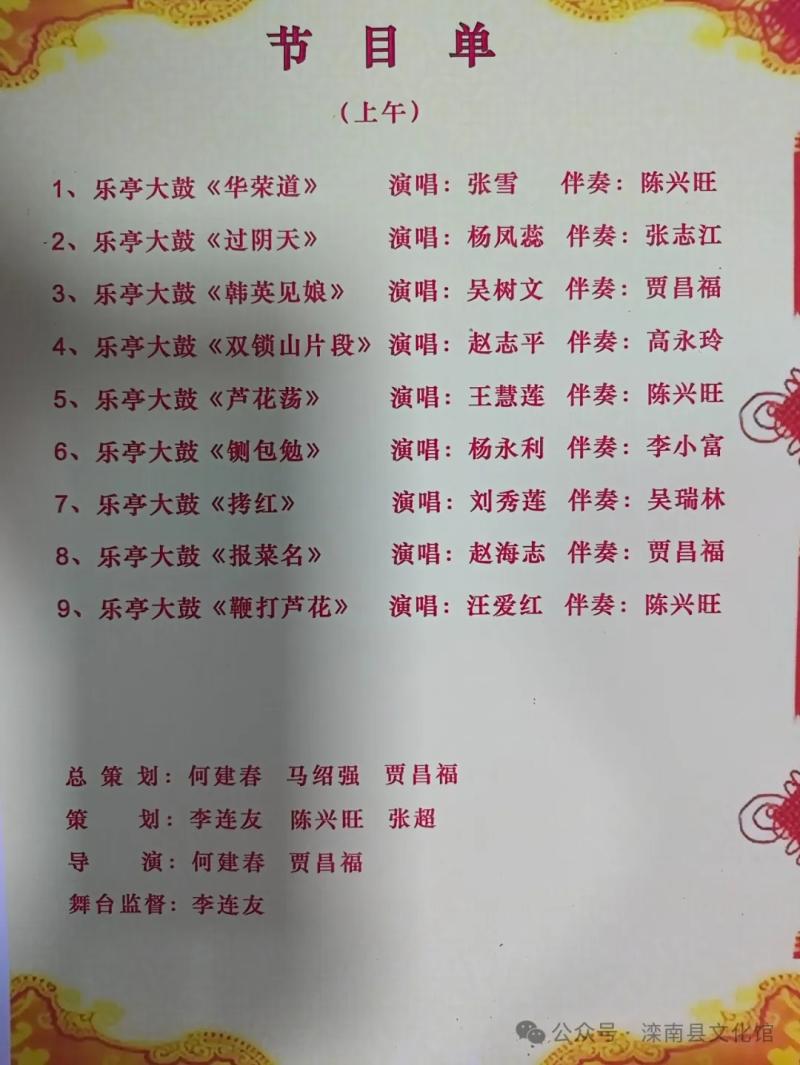 节目单
（上午）
1、乐亭大鼓《华荣道》 演唱：张雪 伴奏：陈兴旺
2、乐亭大鼓《过阴天》 演唱：杨凤蕊 伴奏：张志江
3、乐亭大鼓《韩英见娘》 演唱：吴树文 伴奏：贾昌福
4、乐亭大鼓《双锁山片段》 演唱：赵志平 伴奏：高永玲
5、乐亭大鼓《芦花荡》 演唱：王慧莲 伴奏：陈兴旺
6、乐亭大鼓《铡包勉》 演唱：杨永利 伴奏：李小富
7、乐亭大鼓《拷红》 演唱：刘秀莲 伴奏：吴瑞林
8、乐亭大鼓《报菜名》 演唱：赵海志 伴奏：贾昌福
9、乐亭大鼓《鞭打芦花》 演唱：汪爱红 伴奏：陈兴旺
总策划：何建春 马绍强 贾昌福
策划：李连友 陈兴旺 张超
导演：何建春 贾昌福
舞台监督：李连友
公众号·滦南县文化馆